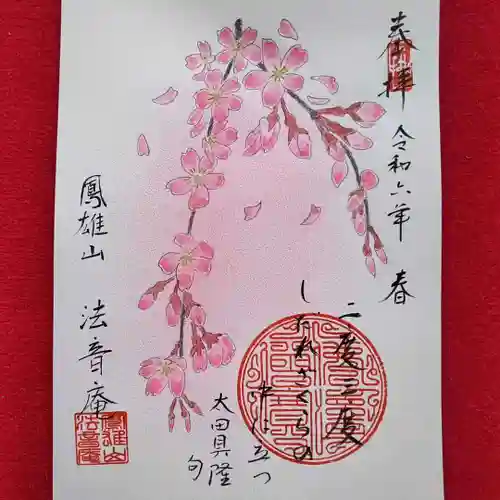 奉拝
令和六年 春
二度三度
しだれざくらの
中は五つ
太田具隆
句
鳳雄山 法音庵
鳳雄山
法音庵